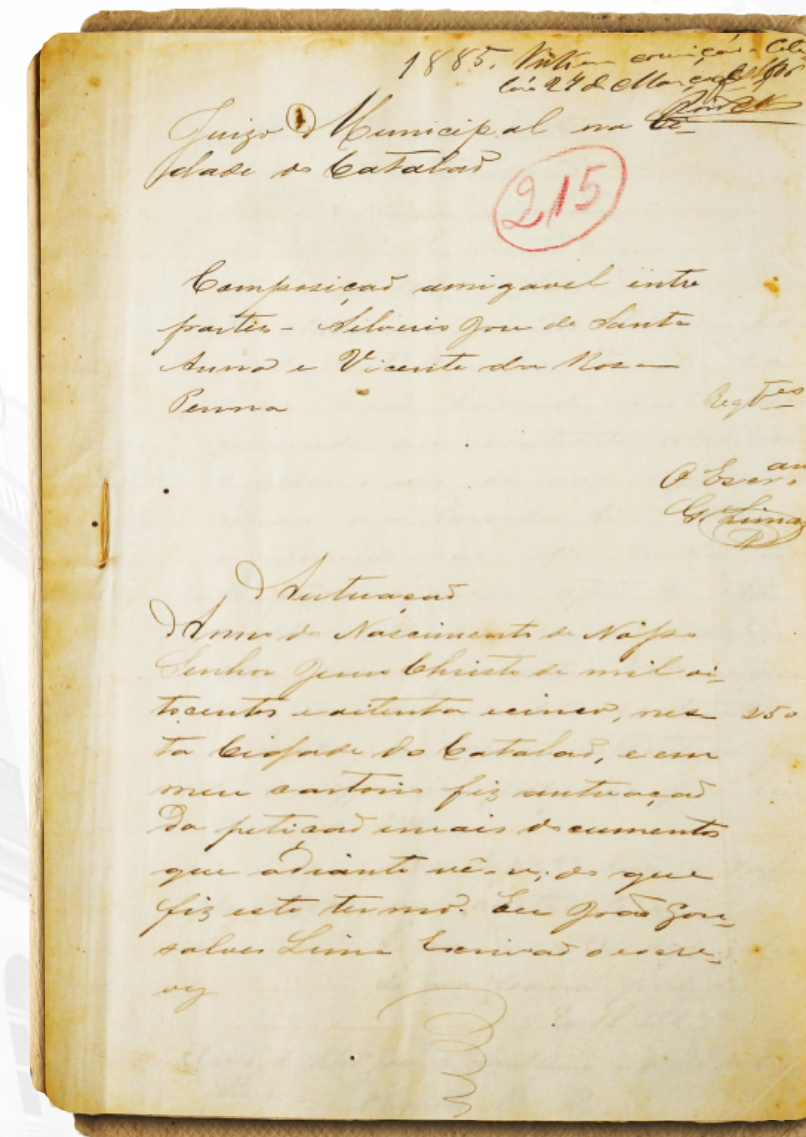 1885. Visto em correição. Cata-
lão 27 de Março de
Juizo Municipal na Ci-
dade do Catalaõ
215
Composicaõ amigavel entre
partes - Silverio Jose de Santa
Anna e Vicente da Rosa
Penna
Reqtes
O Escram
G Lima
Autuacaõ
Anno do Nascimento de Nosso
Senhor Jesus Christo de mil oi-
tocentos e oitenta e cinco, nes-
250
ta Cidade do Catalaõ, e em
meu cartorio fiz autuaçaõ
da peticaõ e mais documentos
que adiante vê-se; do que
fiz este termo. Eu João Gon-
salves Lima Escrivaõ o escre-
vy